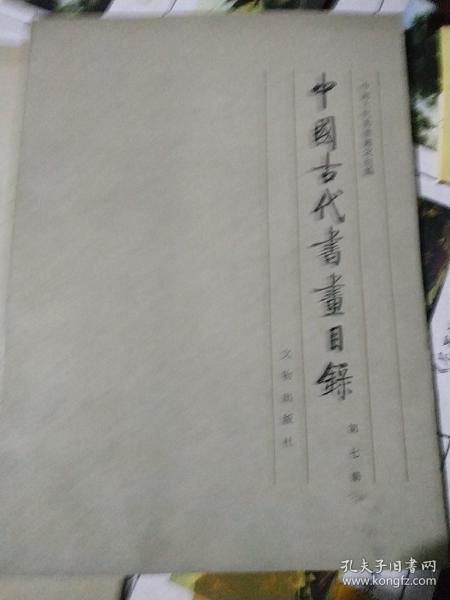 中国古代書畫鑑定組編
中國古代書畫目錄
第七册
文物出版社
孔夫子旧书网
www.kongfz.com